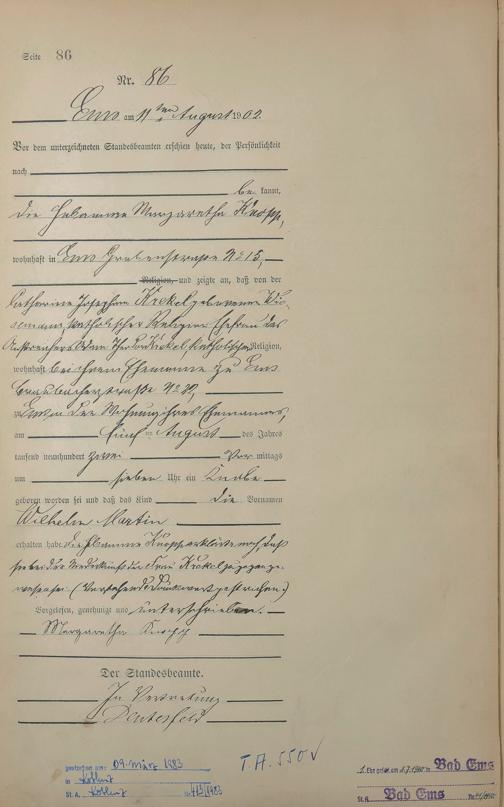 Seite 86
Nr. 86
Ems am 11ten August 1902.
Vor dem unterzeichneten Standesbeamten erschien heute, der Persönlichkeit
nach
be kannt,
die Hebamme Margaretha Knopp,
wohnhaft in Ems Grabenstrasse No 15,
Religion, und zeigte an, daß von der
Catharine Josephine Krekel geborenen
katholischer Religion Ehefrau des
Anstreichers Krekel, katholischer Religion,
wohnhaft bei ihrem Ehemanne zu Ems
Braubacherstraße No
zu Ems in der Wohnung ihres Ehemannes,
am fünften August des Jahres
tausend neunhundert zwei Vor mittags
um sieben Uhr ein Knabe
geboren worden sei und daß das Kind die Vornamen
Wilhelm Martin
erhalten habe. Die Hebamme Knopp erklärte noch, daß
sie bei der Niederkunft der Frau Krekel zugegen ge-
wesen sei. (Vorstehend Druckwort gestrichen)
Vorgelesen, genehmigt und unterschrieben.
Margaretha Knopp
Der Standesbeamte.
In Vertretung
gestorben am: 09. März 1983
in Koblenz
St. A. Koblenz Nr. /1983
T.A. 550 √
1. Ehe gesch. am in Bad Ems
St. A. Bad Ems Nr.